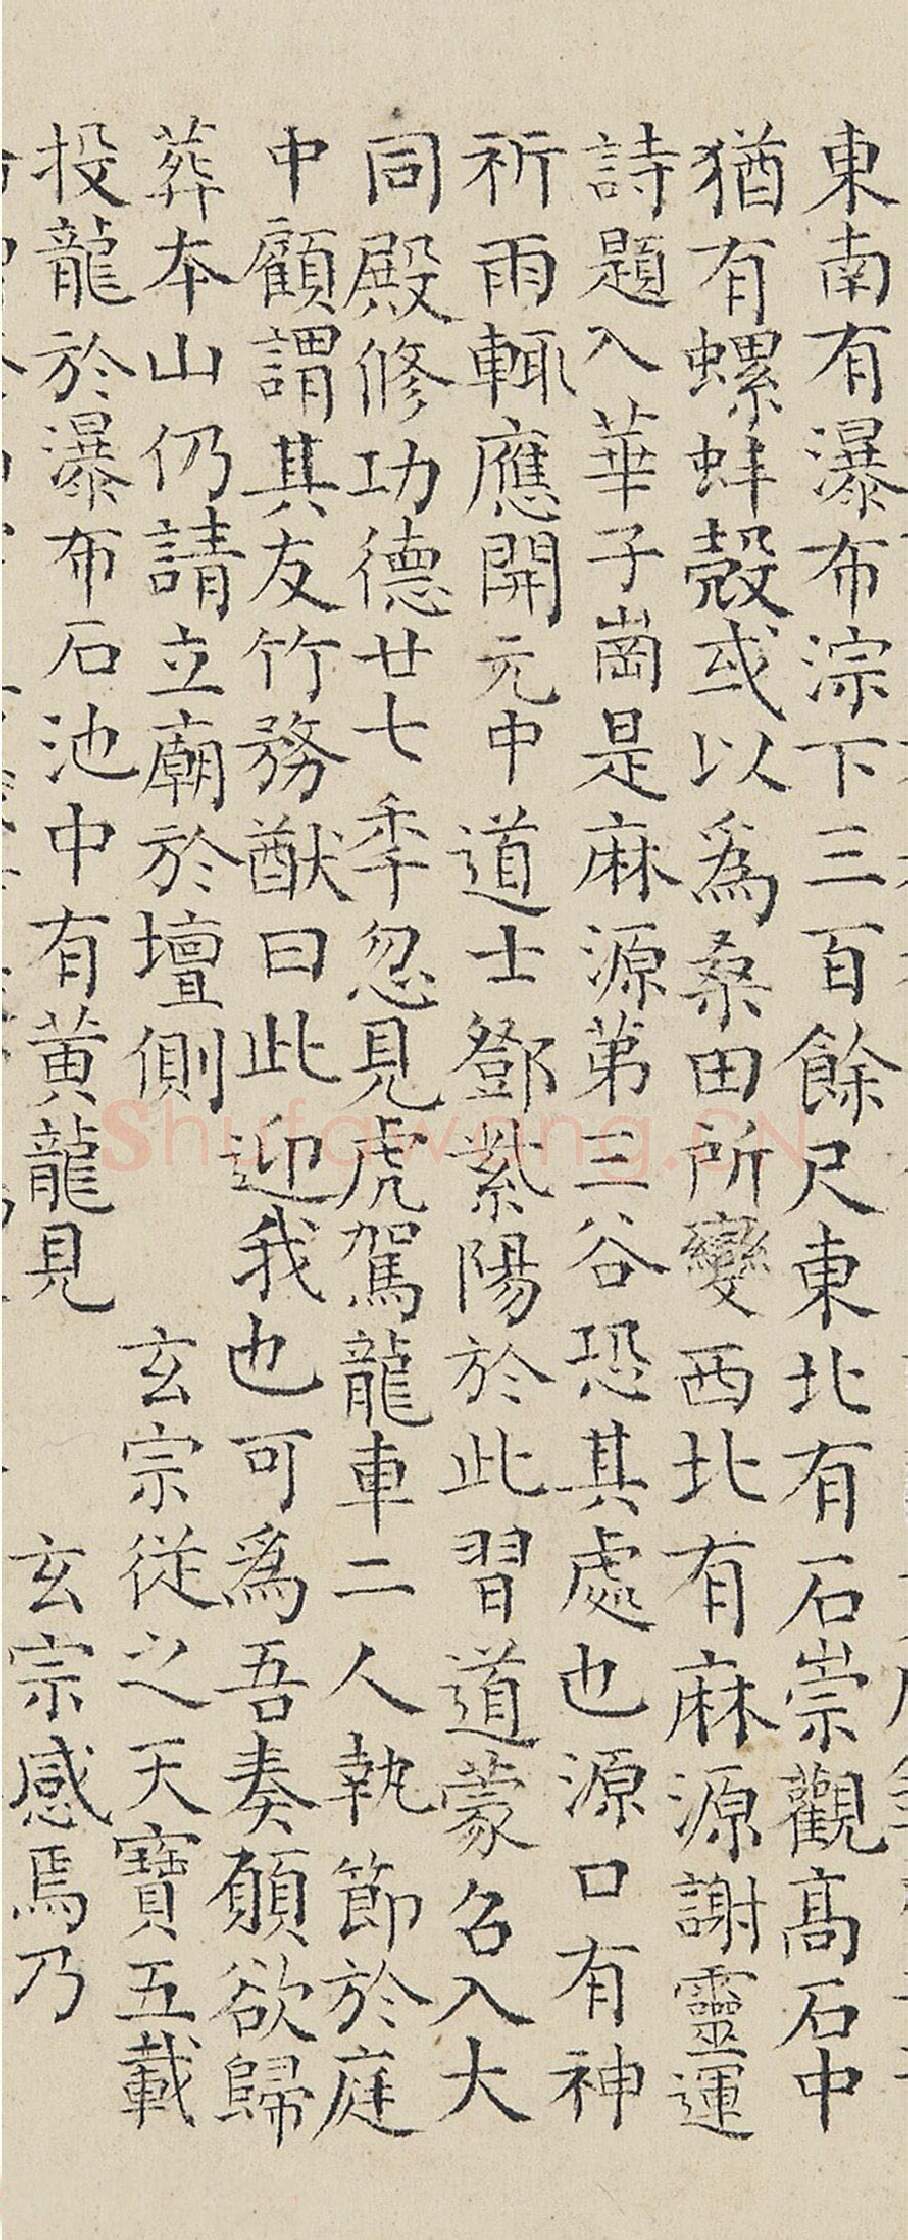 東南有瀑布淙下三百餘尺東北有石崇觀高石中
猶有螺蚌殼或以為桑田所變西北有麻源謝靈運
詩題入華子崗是麻源第三谷恐其處也源口有神
祈雨輒應開元中道士鄧紫陽於此習道蒙召入大
同殿修功德廿七秊忽見虎駕龍車二人執節於庭
中顧謂其友竹務猷曰此迎我也可為吾奏願欲歸
葬本山仍請立廟於壇側 玄宗從之天寶五載
投龍於瀑布石池中有黃龍見 玄宗感焉乃
Shufawang.CN